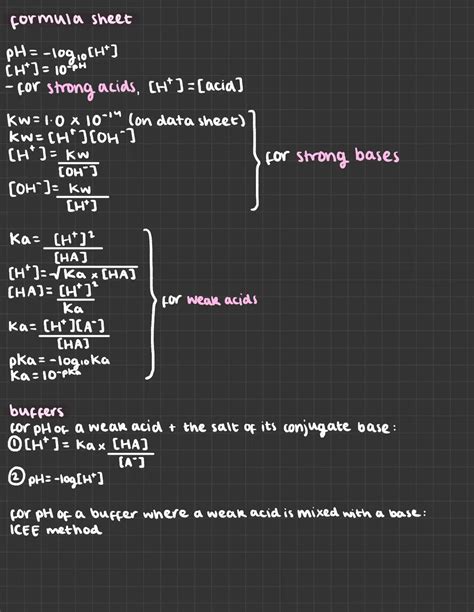 formula sheet
pH = -log₁₀[H⁺]
[H⁺] = 10^-pH
- for strong acids, [H⁺] = [acid]
Kw = 1.0 x 10⁻¹⁴ (on data sheet)
Kw = [H⁺][OH⁻]
[H⁺] = Kw / [OH⁻]
[OH⁻] = Kw / [H⁺]
for strong bases
Ka = [H⁺]² / [HA]
[H⁺] = √Ka x [HA]
[HA] = [H⁺]² / Ka
Ka = [H⁺][A⁻] / [HA]
pKa = -log₁₀Ka
Ka = 10^-pKa
for weak acids
buffers
for pH of a weak acid + the salt of its conjugate base:
① [H⁺] = Ka x [HA] / [A⁻]
② pH = -log[H⁺]
for pH of a buffer where a weak acid is mixed with a base:
ICEE method